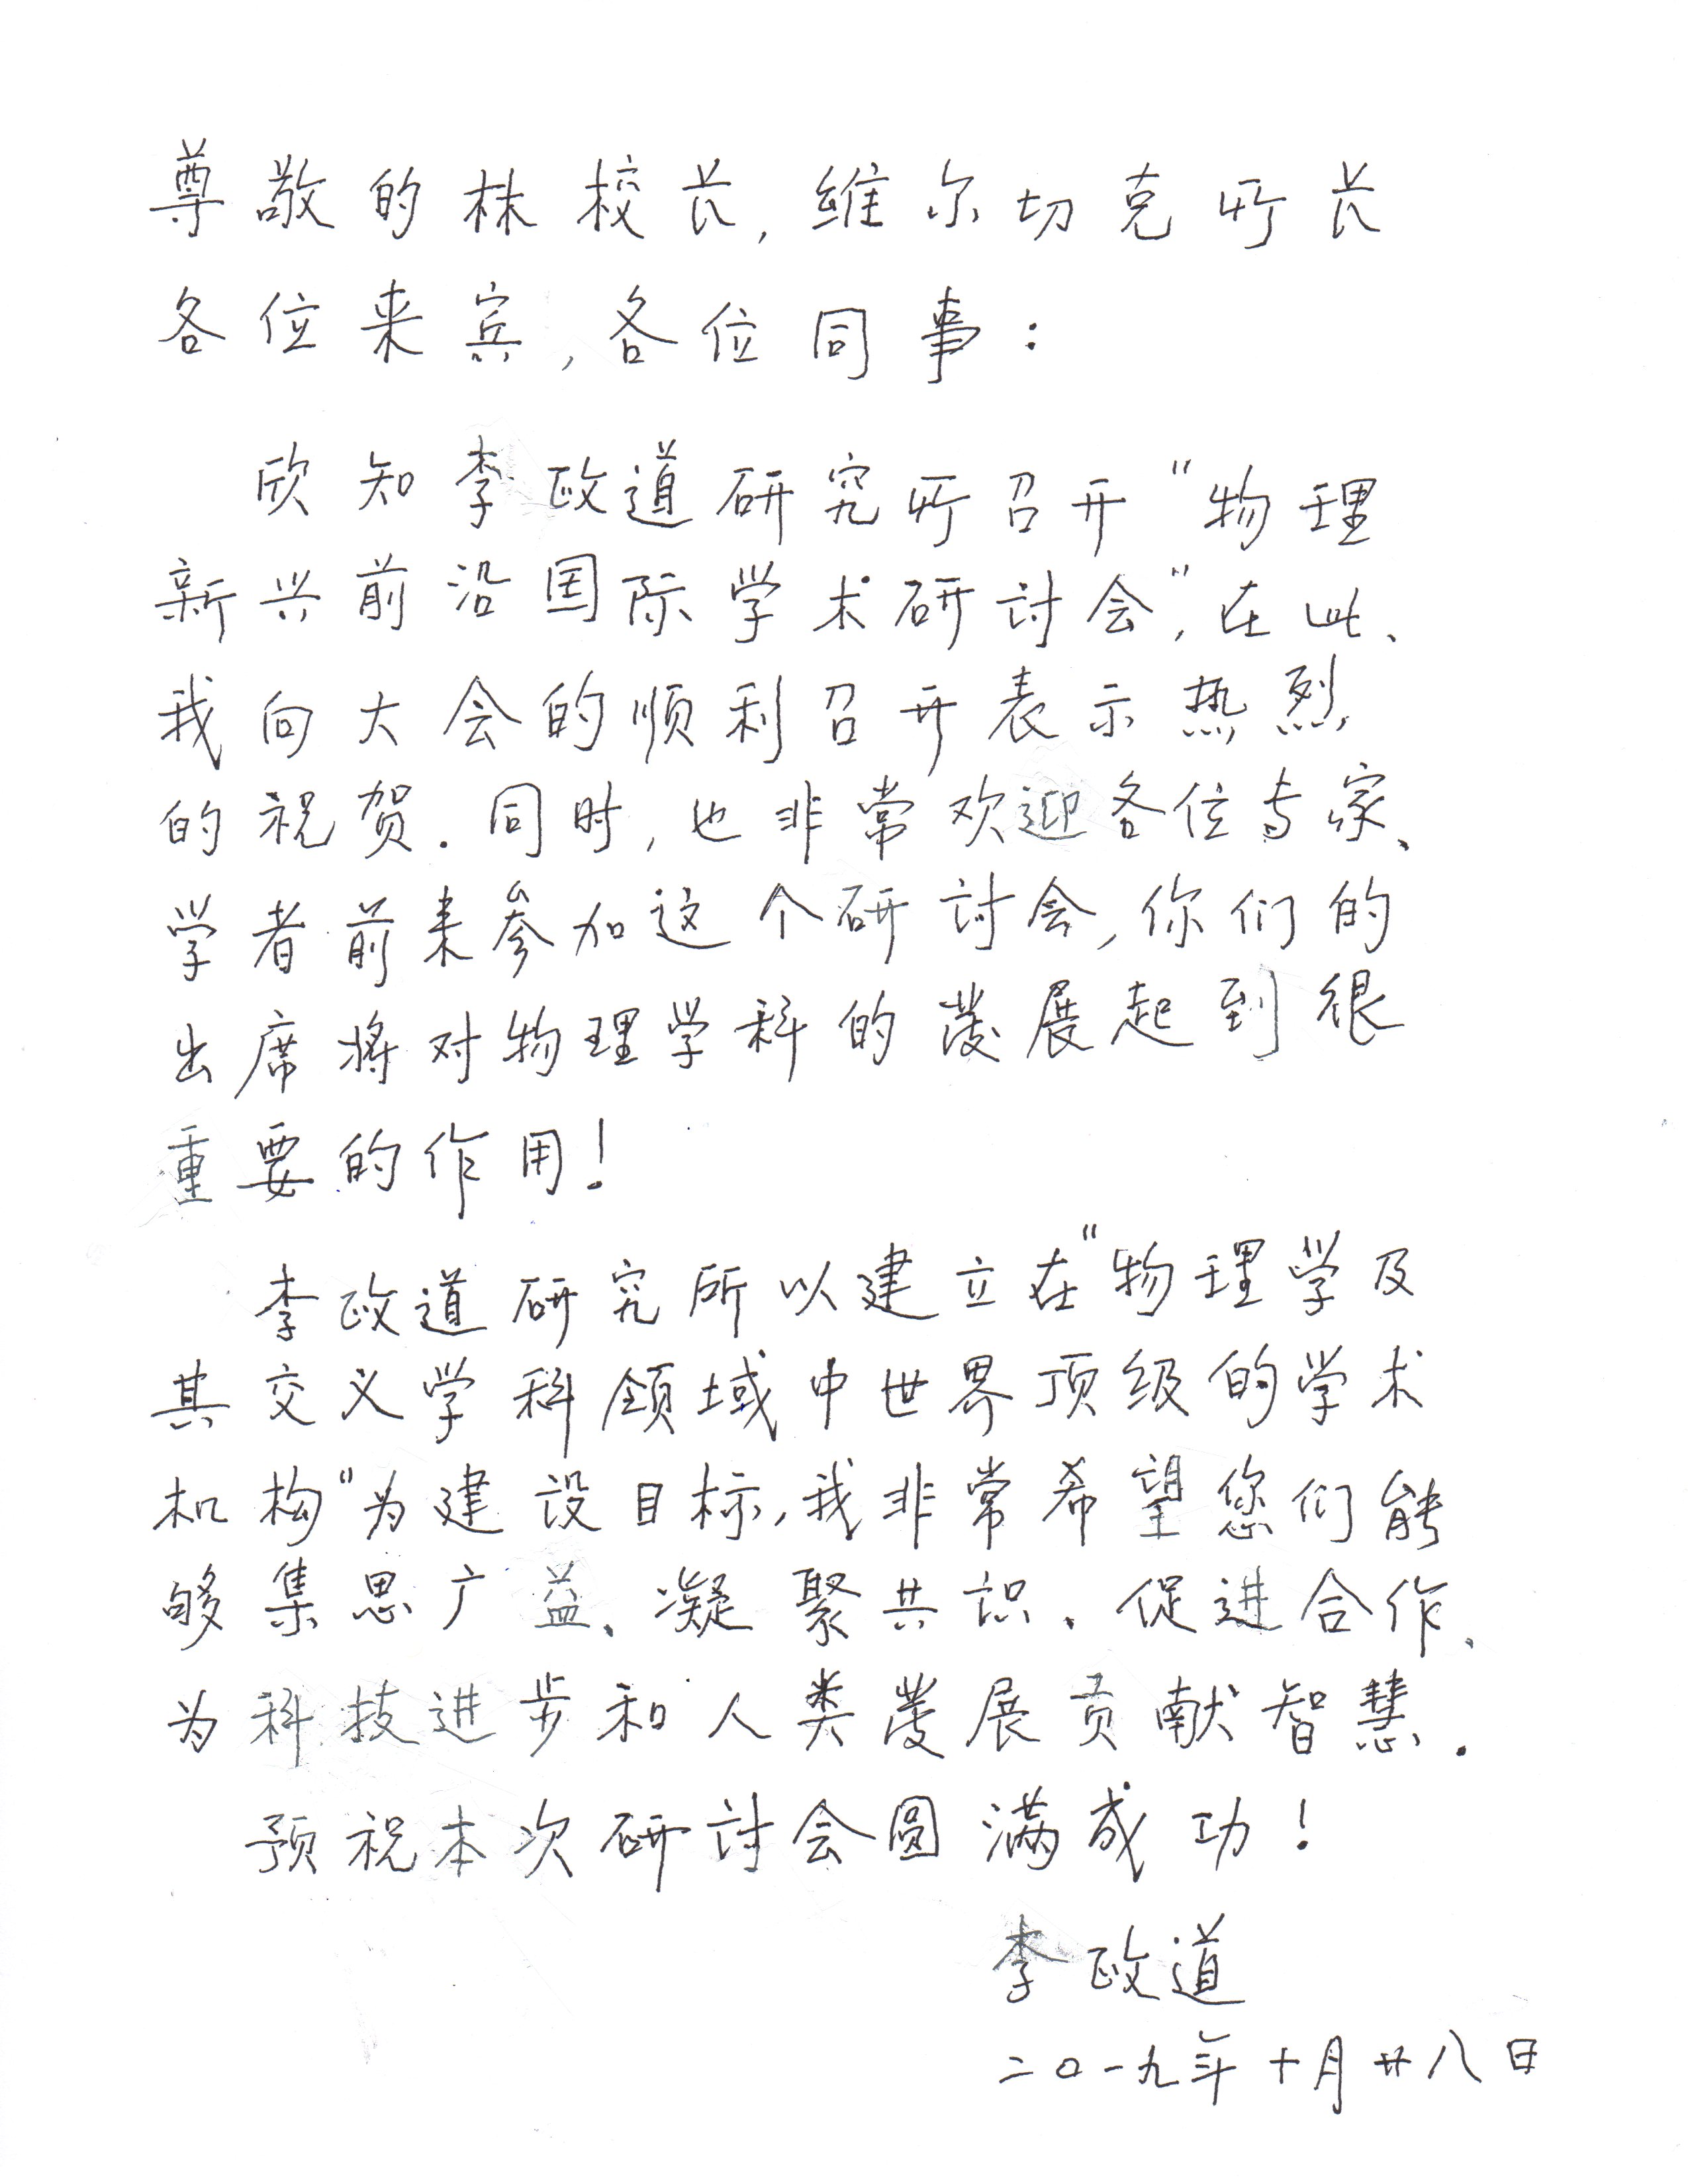 尊敬的林校长,维尔切克所长
各位来宾,各位同事:
欣知李政道研究所召开"物理
新兴前沿国际学术研讨会",在此、
我向大会的顺利召开表示热烈
的祝贺.同时,也非常欢迎各位专家、
学者前来参加这个研讨会,你们的
出席将对物理学科的發展起到很
重要的作用!
李政道研究所以建立在"物理学及
其交义学科領域中世界顶级的学术
机构"为建设目标,我非常希望您们能
够集思广益、凝聚共识、促进合作、
为科技进步和人类發展贡献智慧.
预祝本次研讨会圆满成功!
李政道
二〇一九年十月廿八日